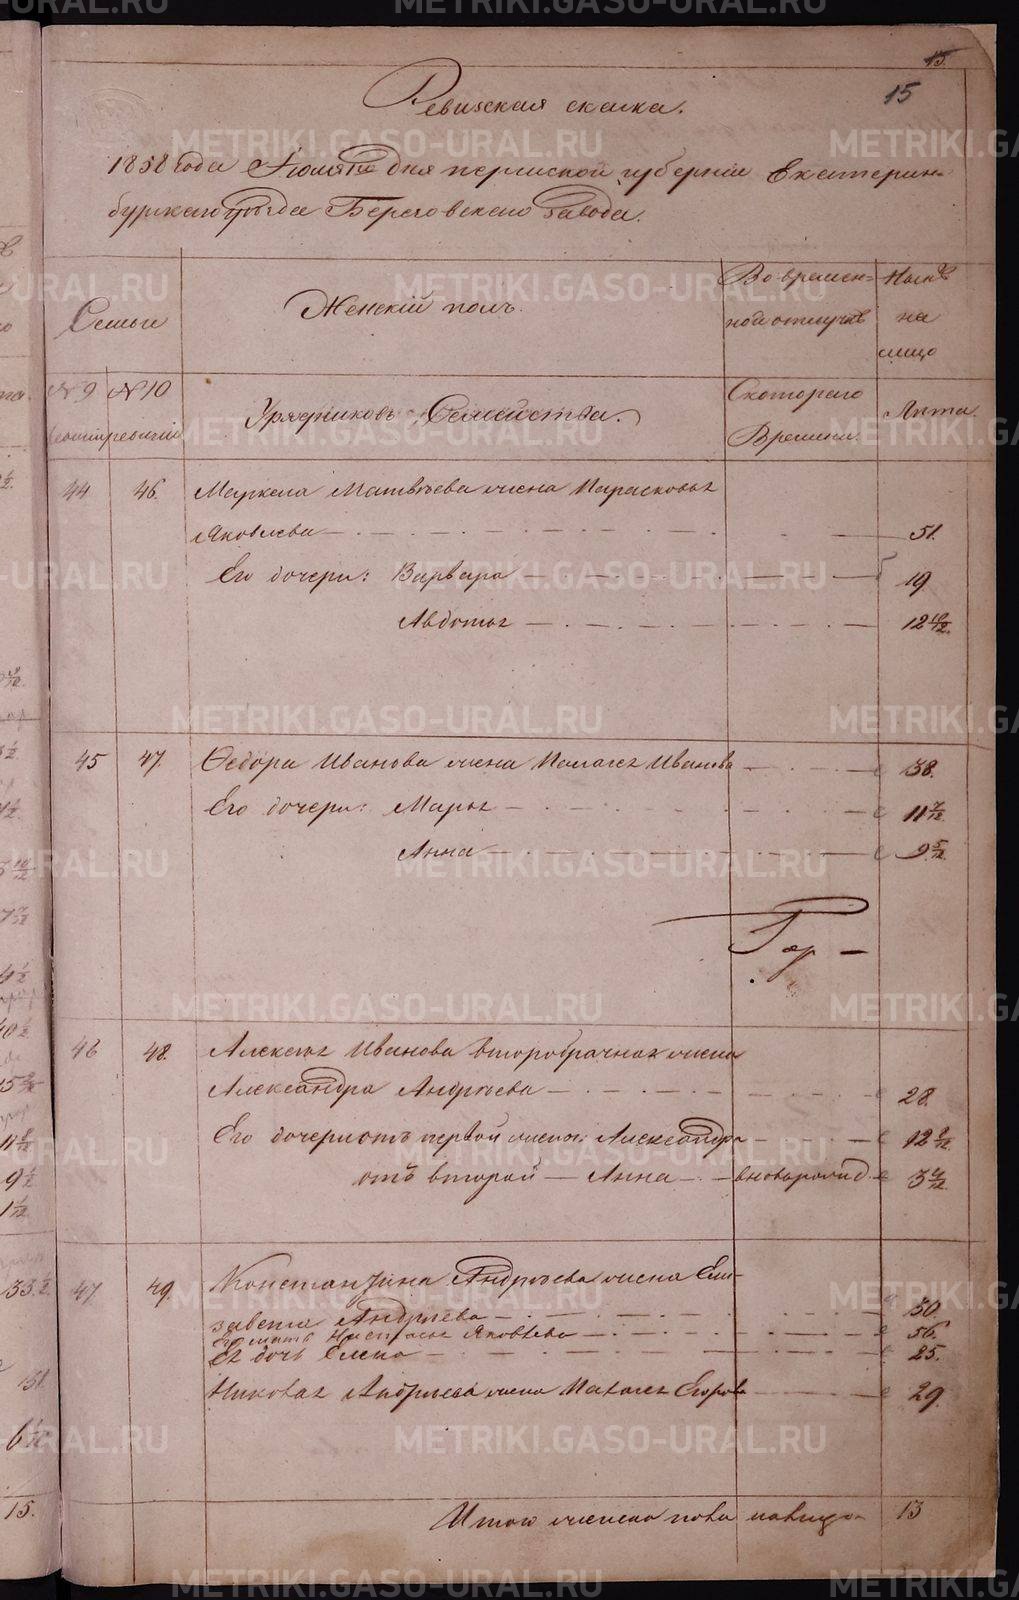 15.
15
Ревизская сказка.
1858 года Іюля дня пермской губерніи Екатерин=
бургскаго уѣзда Березовскаго завода.
Семьи
Женскій полъ.
Во времен=
ной отлучкѣ
на
лицо
№ 9 № 10
Урядниковъ Семейства.
Скотораго
Времени.
Лѣта.
44 46. Маркела Матвѣева жена Парасковья
Яковлева 51.
Его дочери: Варвара 19
Авдотья 12
45 47. Ѳедора Иванова жена Палагея Иванова 38.
Его дочери: Марья 11 7/12.
Анна 9 5/12.
46 48. Алексея Иванова второбрачная жена
Александра Андреева 28.
Его дочери отъ первой жены: Александра 12
отъ второй Анна вноворожд. 3
47 49. Константина Андреева жена Ели-
завета Андреева 30.
Его мать Настасья Яковлева 56.
Ея дочь Елена 25.
Николая Андреева жена Палагея Егорова 29.
Итого женска пола налицо 13
METRIKI.GASO-URAL.RU